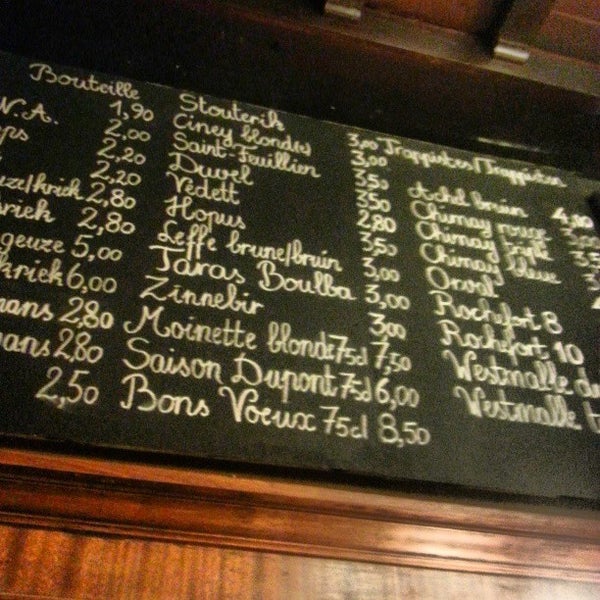 Bouteille
N.A. 1,90
ps 2,00
2,20
2,20
uze/kriek 2,80
kriek 2,80
geuze 5,00
kriek 6,00
mans 2,80
mans 2,80
2,50
Stouterik 3,00
Ciney blond(e) 3,00
Saint-Feuillien 3,50
Duvel 3,50
Vedett 2,80
Hopus 3,50
Leffe brune/bruin 3,00
Taras Boulba 3,00
Zinnebir 3,00
Moinette blonde 75cl 7,50
Saison Dupont 75cl 6,00
Bons Voeux 75cl 8,50
Trappistes/Trappisten
Achel bruin
Chimay rouge 3,00
Chimay triple 3,5
Chimay bleue
Orval
Rochefort 8
Rochefort 10
Westmalle du
Westmalle t